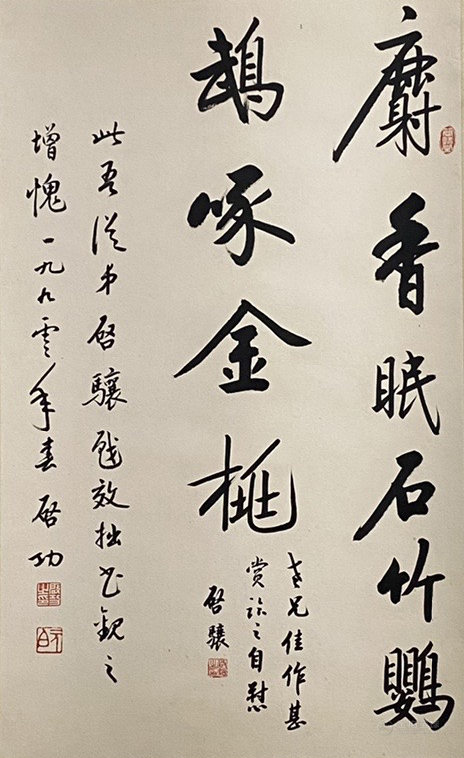 麝香眠石竹鸚
鵡啄金桃
老兄佳作甚
賞之自慰
啓驤
此吾從弟啓驤戲效拙書觀之
增愧一九九零年春啓功